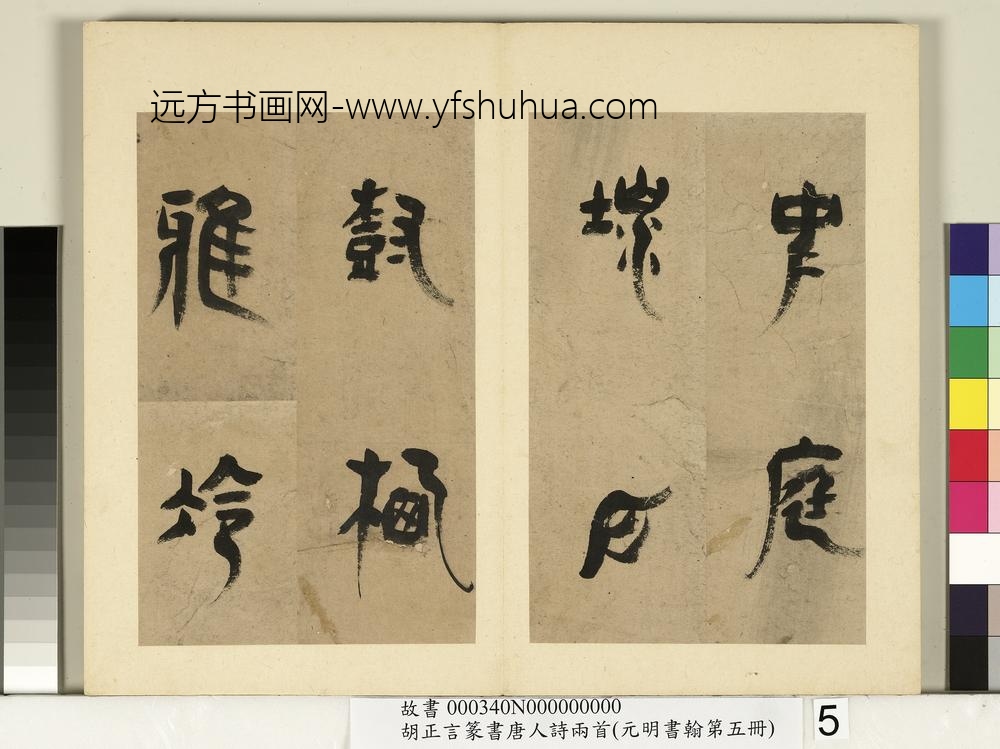 远方书画网-www.yfshuhua.com
中庭
地白
尌棲
雅冷
故書 000340N000000000
胡正言篆書唐人詩兩首(元明書翰第五冊)
5